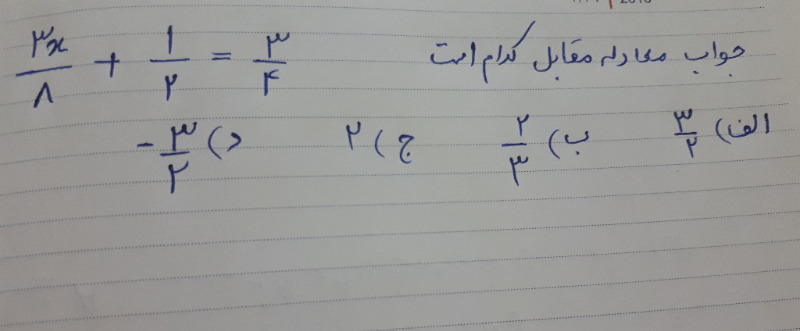 جواب معادله مقابل کدام است ۳x/۸ + ۱/۲ = ۳/۴
الف) ۳/۲ ب) ۲/۳ ج) ۲ د) -۳/۲